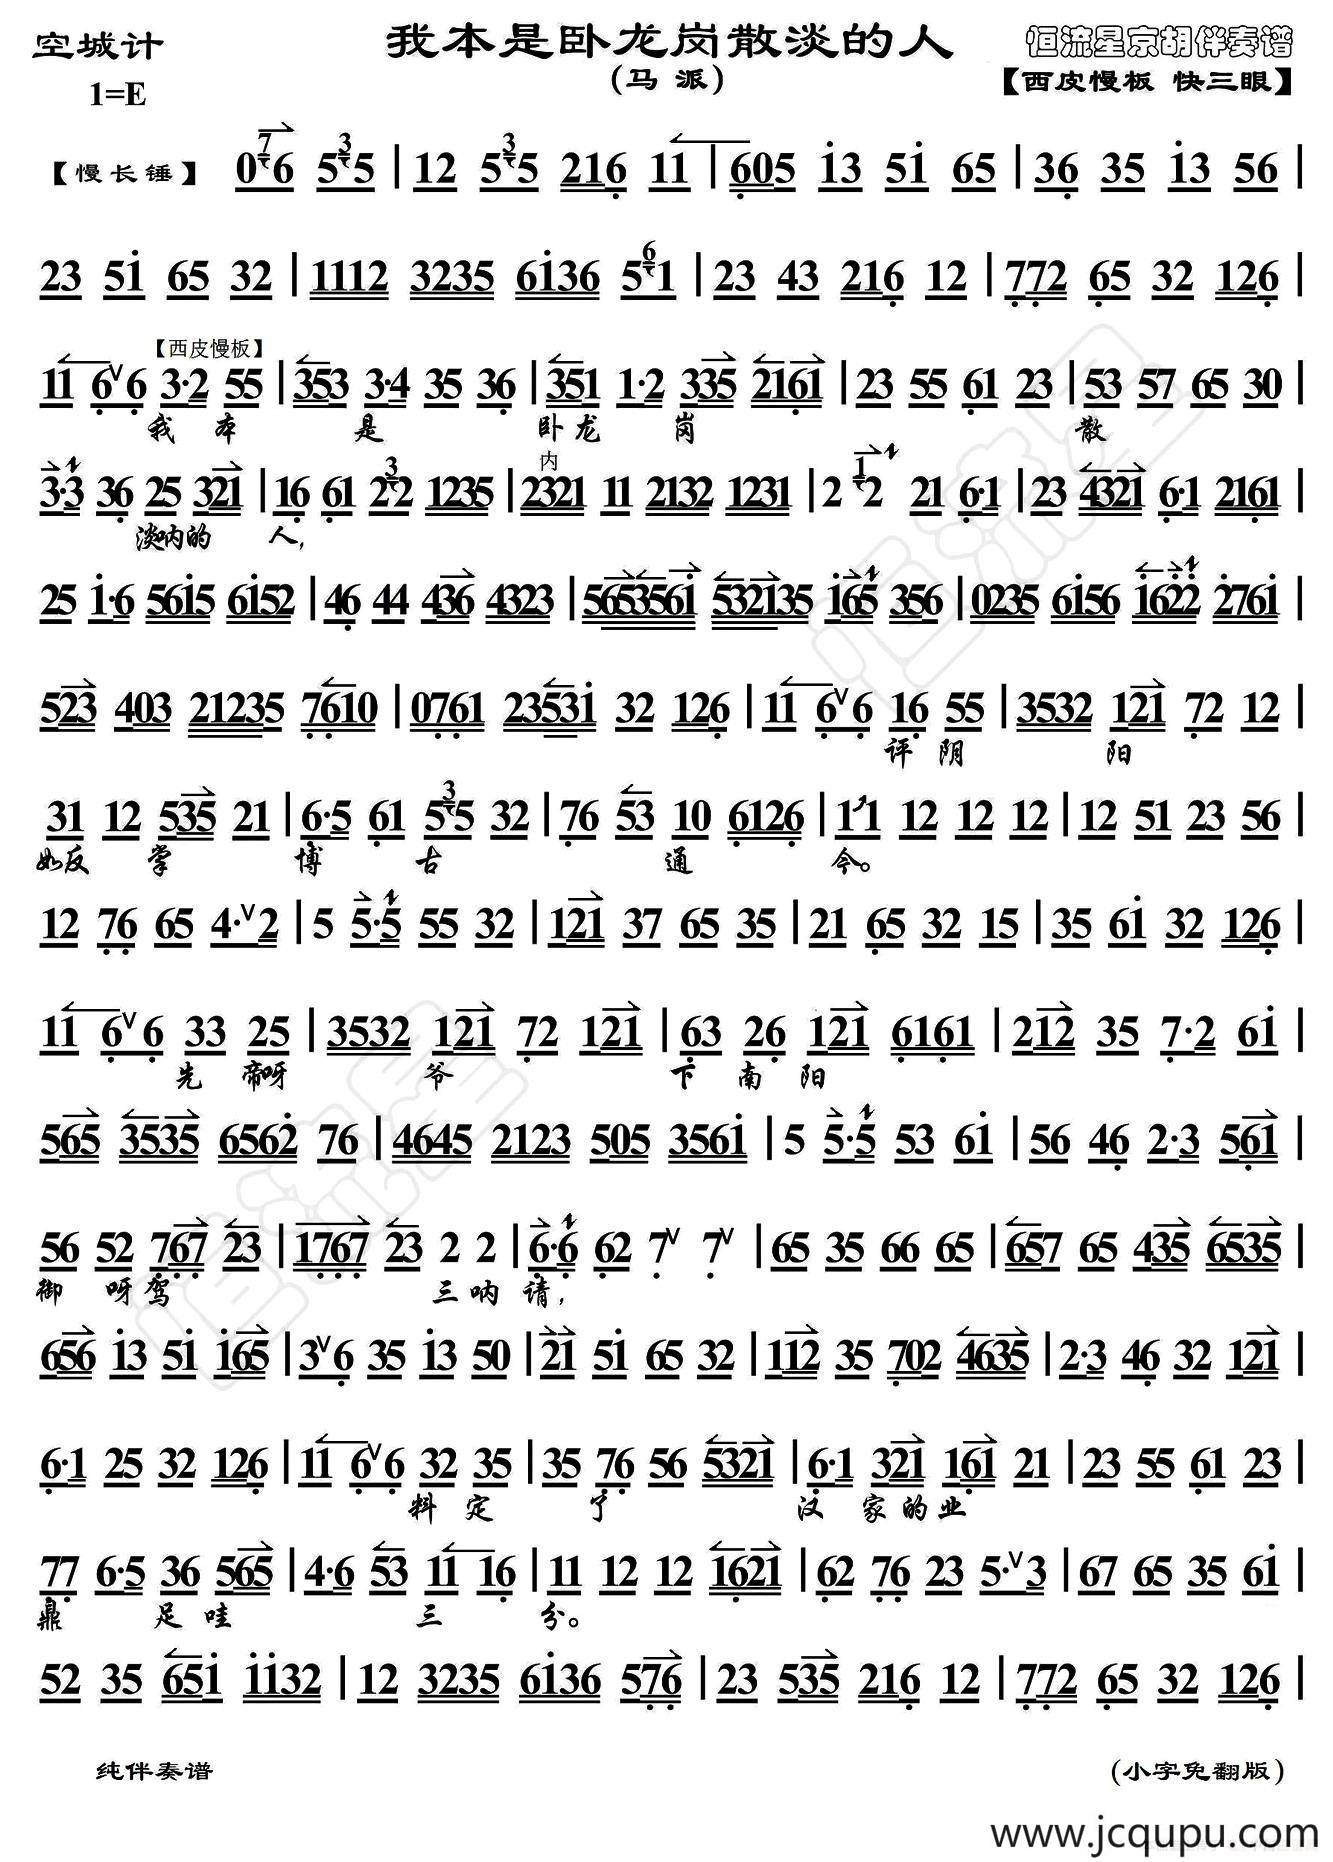 空城计 我本是卧龙岗散淡的人 恒流星京胡伴奏谱
1=E (马 派) 【西皮慢板 快三眼】
【慢长锤】 0 7 6 5 3 5 | 12 5 3 5 216 11 | 605 13 51 65 | 36 35 13 56 |
23 51 65 32 | 1112 3235 6136 5 6 1 | 23 43 216 12 | 772 65 32 126 |
【西皮慢板】
11 6∨6 3·2 55 | 353 3·4 35 36 | 351 1·2 335 2161 | 23 55 61 23 | 53 57 65 30
我 本 是 卧 龙 岗 散
内
3·3 36 25 321 | 16 61 2 3 2 1235 | 2321 11 2132 1231 | 2 1 2 21 6·1 | 23 4321 6·1 2161 |
淡呐的 人，
25 1·6 5615 6152 | 46 44 436 4323 | 5653561 532135 165 356 | 0235 6156 1622 2761 |
523 403 21235 7610 | 0761 23531 32 126 | 11 6∨6 16 55 | 3532 121 72 12 |
评 阴 阳
31 12 535 21 | 6·5 61 5 3 5 32 | 76 53 10 6126 | 11 12 12 12 | 12 51 23 56 |
如反 掌 博 古 通 今。
12 76 65 4·∨2 | 5 5·5 55 32 | 121 37 65 35 | 21 65 32 15 | 35 61 32 126 |
11 6∨6 33 25 | 3532 121 72 121 | 63 26 121 6161 | 212 35 7·2 61 |
先 帝呀 爷 下 南 阳
565 3535 6562 76 | 4645 2123 505 3561 | 5 5·5 53 61 | 56 46 2·3 561 |
56 52 767 23 | 1767 23 2 2 | 6·6 62 7∨ 7∨ | 65 35 66 65 | 657 65 435 6535 |
御 呀驾 三 呐 请，
656 13 51 165 | 3∨6 35 13 50 | 21 51 65 32 | 112 35 702 4635 | 2·3 46 32 121 |
6·1 25 32 126 | 11 6∨6 32 35 | 35 76 56 5321 | 6·1 321 161 21 | 23 55 61 23
料 定 了 汉 家 的 业
77 6·5 36 565 | 4·6 53 11 16 | 11 12 12 1621 | 62 76 23 5·∨3 | 67 65 35 61 |
鼎 足 哇 三 分。
52 35 651 1132 | 12 3235 6136 576 | 23 535 216 12 | 772 65 32 126 |
纯伴奏谱 (小字免翻版)
www.jcqupu.com
恒流星
恒流星